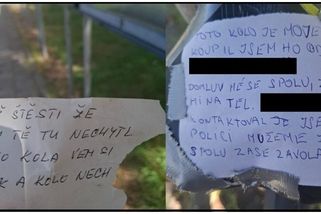 ŠTĚSTI ŽE
TĚ TU NECHYTL
KOLA VEM SI
A KOLO NECH
TOTO KOLO JE MOJE
KOUPIL JSEM HO
DOMLUV MÉ SE SPOLU,
MI NA TEL.
KONTAKTOVAL JSEM
POLICI MUŽEME
SPOLU ZASE ZAVOLA